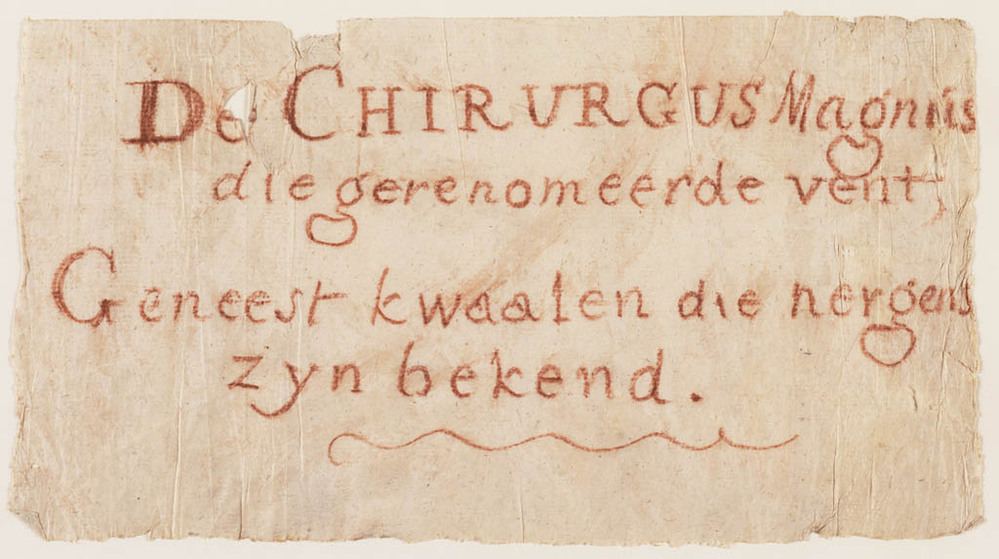 De CHIRURGUS Magnus
die gerenomeerde vent,
Geneest kwaalen die nergens
zyn bekend.